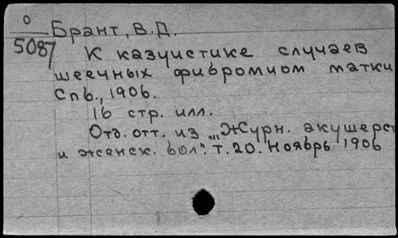 0
5087
Брант, В.Д.
К казуистике случаев
шеечных фибромиом матки
Спб., 1906.
16 стр. илл.
Отд. отт. из „Журн. акушерст
и женск. бол". т. 20. Ноябрь 1906